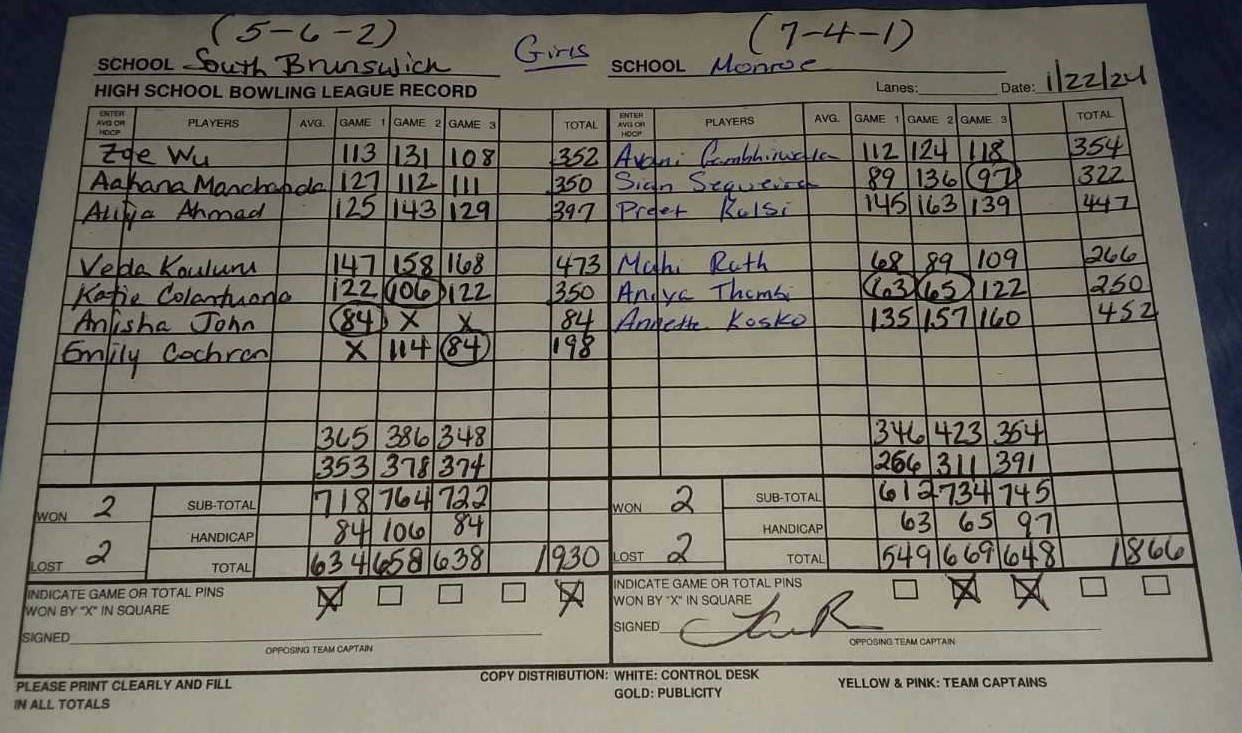 (5-6-2) (7-4-1)
SCHOOL South Brunswick Girls SCHOOL Monroe
HIGH SCHOOL BOWLING LEAGUE RECORD Lanes: Date: 1/22/24
ENTER AVG OR HDCP PLAYERS AVG. GAME 1 GAME 2 GAME 3 TOTAL ENTER AVG OR HDCP PLAYERS AVG. GAME 1 GAME 2 GAME 3 TOTAL
Zoe Wu 113 131 108 352 Avani 112 124 118 354
Aahana Manchanda 127 112 111 350 Sian Sequeira 89 136 97 322
Aliya Ahmad 125 143 129 397 Preet Kalsi 145 163 139 447
Veda 147 158 168 473 Mahi Rath 68 89 109 266
Katie Colantuono 122 106 122 350 63 65 122 250
Anisha John 84 X X 84 Annette Kosko 135 157 160 452
Emily Cochran X 114 84 198
365 386 348 346 423 354
353 378 374 266 311 391
WON 2 SUB-TOTAL 718 764 722 WON 2 SUB-TOTAL 612 734 745
HANDICAP 84 106 84 HANDICAP 63 65 97
LOST 2 TOTAL 634 658 638 1930 LOST 2 TOTAL 549 669 648 1866
INDICATE GAME OR TOTAL PINS X X INDICATE GAME OR TOTAL PINS X X
WON BY "X" IN SQUARE WON BY "X" IN SQUARE
SIGNED SIGNED
OPPOSING TEAM CAPTAIN OPPOSING TEAM CAPTAIN
PLEASE PRINT CLEARLY AND FILL COPY DISTRIBUTION: WHITE: CONTROL DESK YELLOW & PINK: TEAM CAPTAINS
IN ALL TOTALS GOLD: PUBLICITY